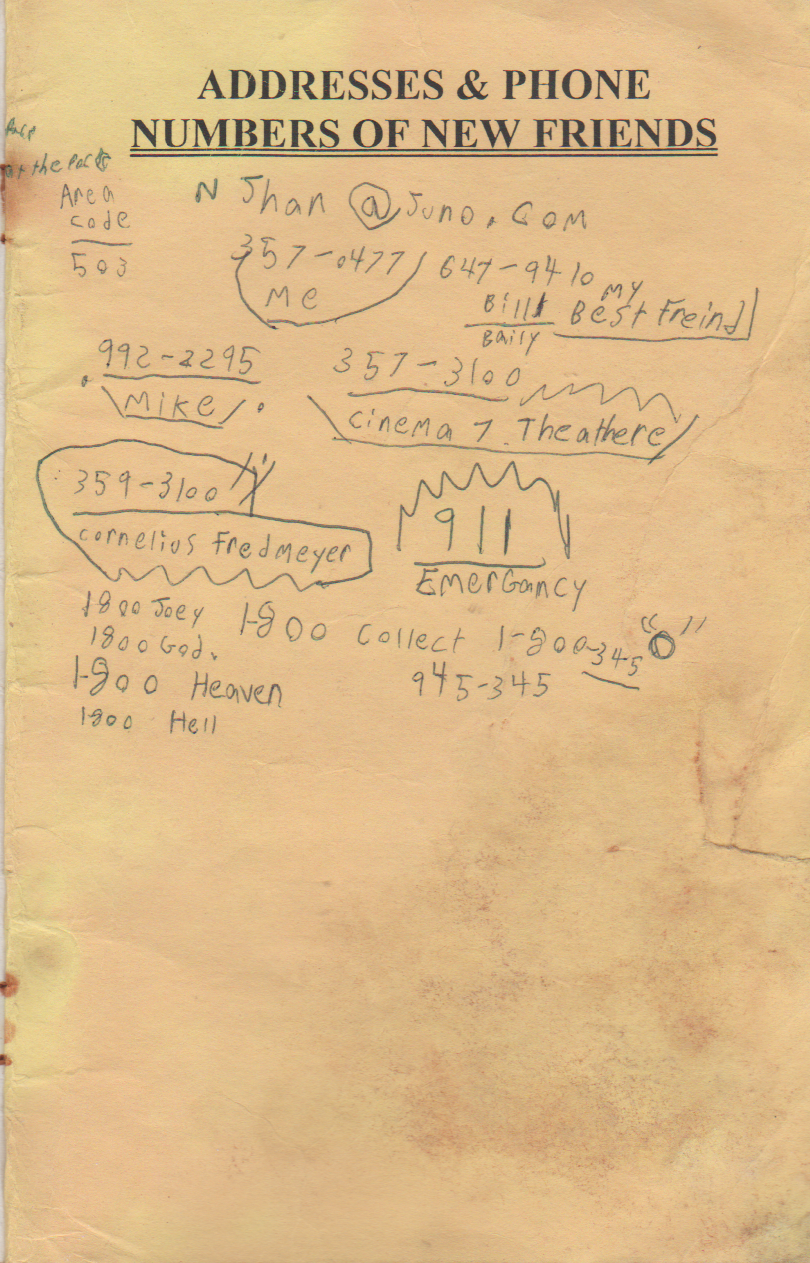 ADDRESSES & PHONE
NUMBERS OF NEW FRIENDS
at the Park
Area
code
503
N Jhan @ Juno. Com
357-0477
Me
647-9410
Bill
Baily
MY
Best Freind
992-2295
Mike
357-3100
cinema 7 Theathere
359-3100
cornelius Fredmeyer
911
EmerGancy
1800 Joey
1800 God.
1-800 Heaven
1800 Hell
1-800 Collect 1-800-345 "0"
945-345